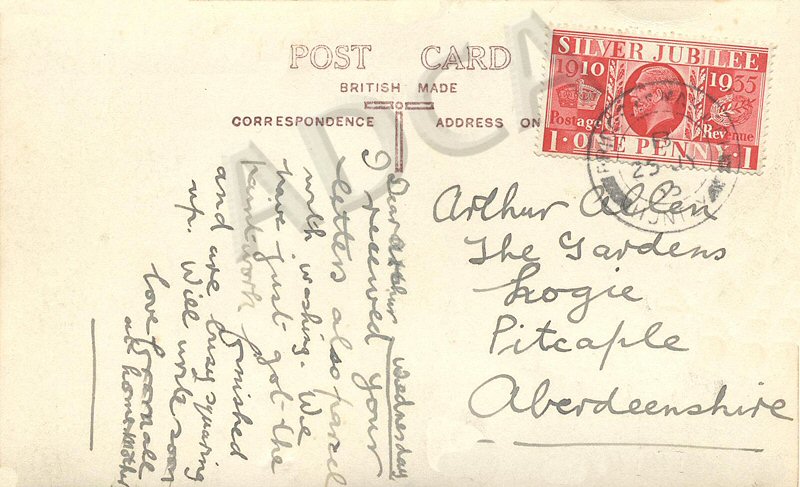 POST CARD
BRITISH MADE
CORRESPONDENCE ADDRESS ON
SILVER JUBILEE
1910 1935
Postage Revenue
1 · ONE PENNY · 1
Arthur Allen
The Gardens
Logie
Pitcaple
Aberdeenshire
Wednesday
Dear Arthur
I received your
letters also parcel
with washing. We
have just got the
paintwork finished
and are busy squaring
up. Will write soon
love from all
at home. Mother
ADCA